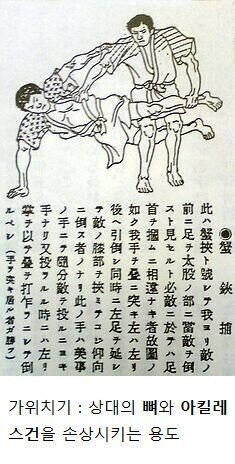 ◉蟹鋏捕
此ハ蟹挾ト號シテ我ヨリ敵ノ
前ニ足ヲ太股ノ部ニ當テ倒
スト見セルト必敵ニ於テハ足
首ヲ摑ムニ相違ナキ者故圖ノ
如ク我手ヲ疊ニ突キ左ハ片
後ヘ引倒シ同時ニ左足ヲ延シ
テ敵ノ膝部ヲ挾ミテコシ仰向
ニ倒ス者ノナリ此ノ手ハ美事
ノ手ニテ随分敵ヲ投ルニヨキ
手ナリ又投ラルル時ニハ左リ
掌ヲ以テ疊ヲ打乍ラニテ倒
ルベシ(手ヲ突キ居ル者ガ勝ヲ)
가위치기 : 상대의 뼈와 아킬레
스건을 손상시키는 용도